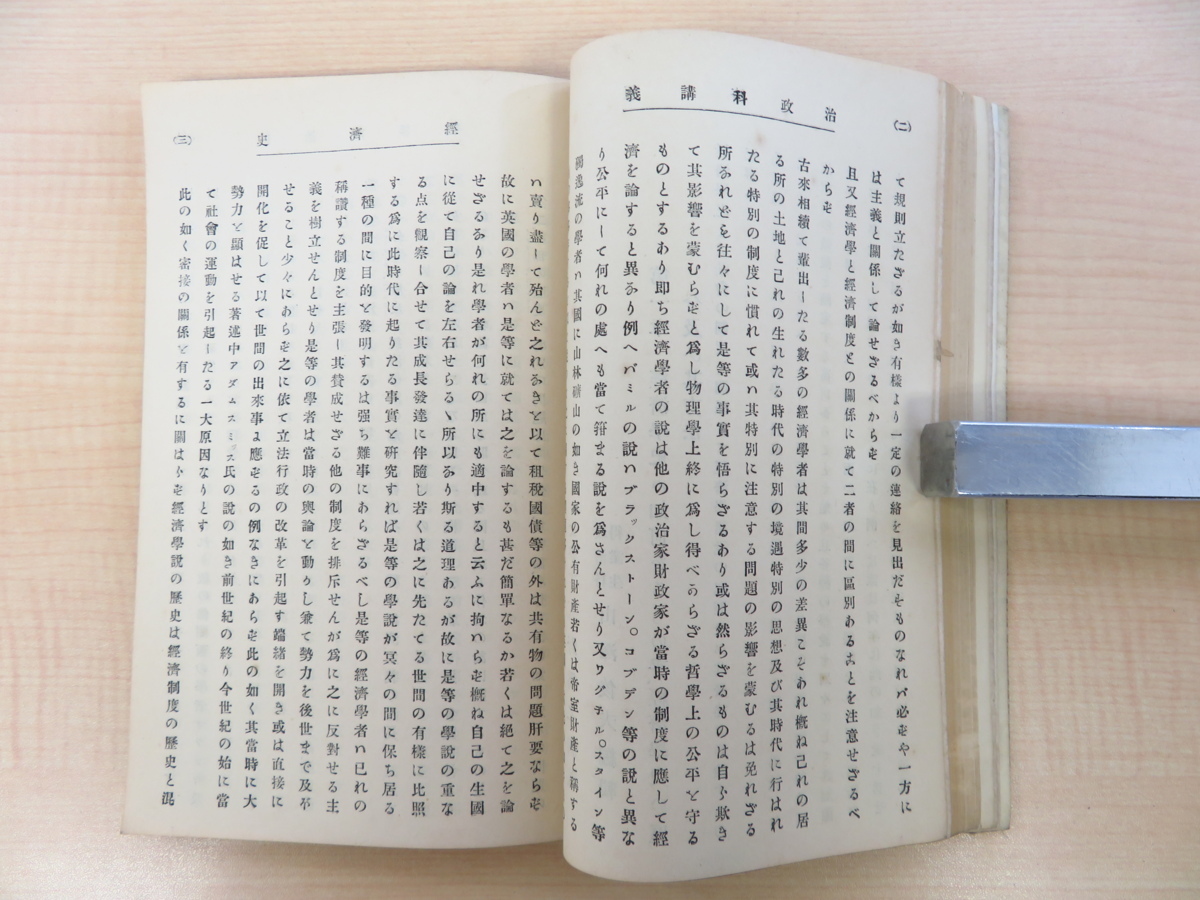 (二)
治政科講義
て規則立たざるが如き有樣より一定の連絡を見出だそものなれバ必ずや一方に
は主義と關係して論せざるべからず
且又經濟學と經濟制度との關係に就て二者の間に區別あることを注意せざるべ
からず
古來相續て輩出したる數多の經濟學者は其間多少の差異こそあれ概ね己れの居
る所の土地と己れの生れたる時代の特別の境遇特別の思想及び其時代に行はれ
たる特別の制度に慣れて或ハ其特別に注意する問題の影響を蒙むるは免れざる
所なれども往々にして是等の事實を悟らざるあり或は然らざるものは自ら欺き
て其影響を蒙むらずと爲し物理學上終に爲し得べからざる哲學上の公平を守る
ものとするあり即ち經濟學者の說は他の政治家財政家が當時の制度に應して經
濟を論すると異なり例へバミルの說ハブラックストーン。コブデン等の說と異な
り公平にして何れの處へも當て箝まる說を爲さんとせり又ワグチル。スタイン等
獨逸流の學者ハ其國に山林礦山の如き國家の公有財產若くは帝室財產と稱する
經濟史
(三)
ハ賣り盡して殆んど之れなきを以て租稅國債等の外は共有物の問題肝要ならず
故に英國の學者ハ是等に就ては之を論するも甚だ簡單なるか若くは絶て之を論
せざるなり是れ學者が何れの所にも適中すると云ふに拘ハらず概ね自己の生國
に從て自己の論を左右せらるゝ所以なり斯る道理あるが故に是等の學說の重な
る点を觀察し合せて其成長發達に伴隨し若くは之に先たてる世間の有樣に比照
する爲に此時代に起りたる事實を硏究すれば是等の學說が冥々の間に保ち居る
一種の間に目的を發明するは强ち難事にあらざるべし是等の經濟學者ハ已れの
稱讃する制度を主張し其賛成せざる他の制度を排斥せんが爲に之に反對せる主
義を樹立せんとせり是等の學者は當時の輿論を動し兼て勢力を後世まで及ぼ
せること少々にあらず之に依て立法行政の改革を引起す端緒を開き或は直接に
開化を促して以て世間の出來事に應ずるの例なきにあらず此の如く其當時に大
勢力を顯はせる著述中アダムスミッス氏の說の如き前世紀の終り今世紀の始に當
て社會の運動を引起したる一大原因なりとす
此の如く密接の關係を有するに關はらず經濟學說の歷史は經濟制度の歷史と混